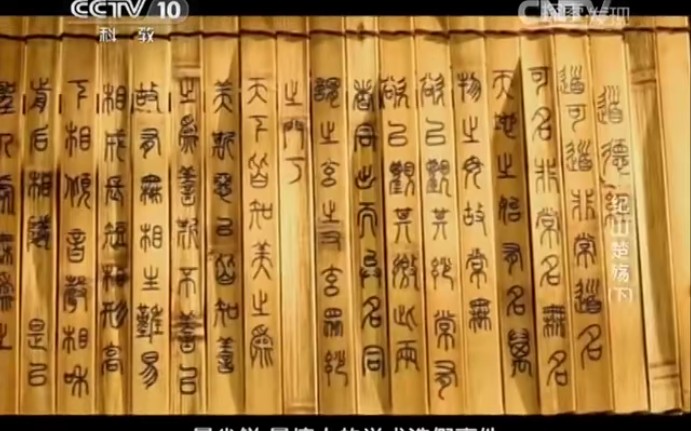 CCTV 10
科教
CNTV
发现
道德經
道可道非常道名
可名非常名無名
天地之始有名萬
物之母故常無
欲以觀其妙常有
欲以觀其徼此兩
者同出而異名同
謂之玄之又玄眾妙
之門
天下皆知美之為
美斯惡已皆知善
之為善斯不善已
故有無相生難易
相成長短相形高
下相傾音聲相和
后相隨 是以
山楚殇(下)